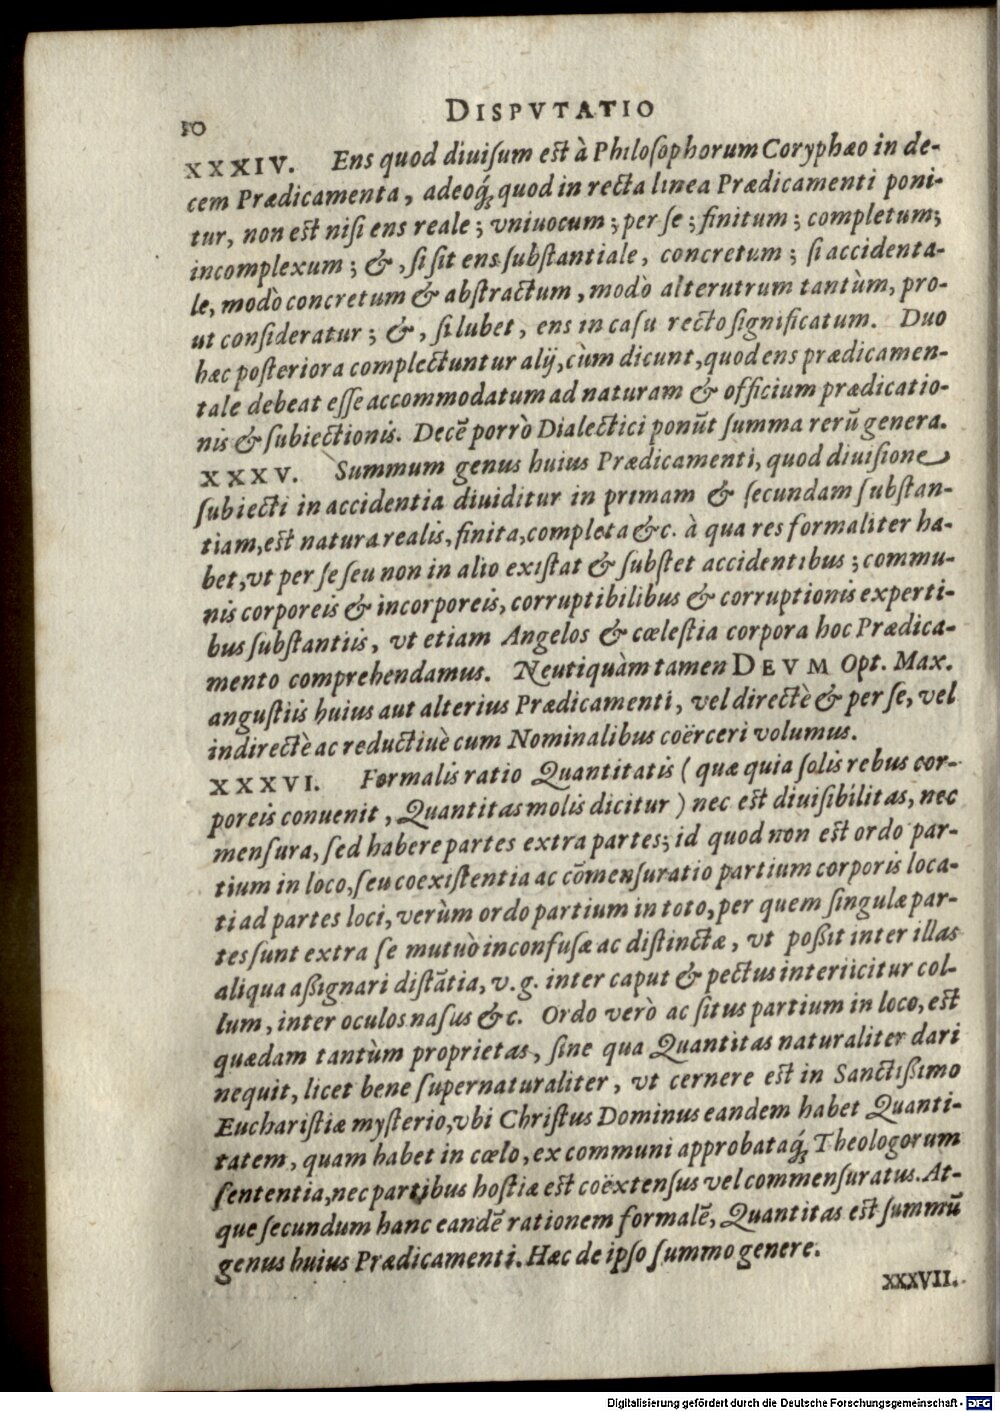 DISPVTATIO
10
XXXIV. Ens quod diuiſum eſt à Philoſophorum Coryphæo in de-
cem Prædicamenta, adeoq́; quod in recta linea Prædicamenti poni-
tur, non eſt niſi ens reale; vniuocum; per ſe; finitum; completum;
incomplexum; &, ſi ſit ens ſubſtantiale, concretum; ſi accidenta-
le, modò concretum & abſtractum, modò alterutrum tantùm, pro-
ut conſideratur; &, ſi lubet, ens in caſu recto ſignificatum. Duo
hæc poſteriora complectuntur alij, cùm dicunt, quod ens prædicamen-
tale debeat eſſe accommodatum ad naturam & officium prædicatio-
nis & ſubiectionis. Decē porrò Dialectici ponūt ſumma rerū genera.
XXXV. Summum genus huius Prædicamenti, quod diuiſione
ſubiecti in accidentia diuiditur in primam & ſecundam ſubſtan-
tiam, eſt natura realis, finita, completa &c. à qua res formaliter ha-
bet, vt per ſe ſeu non in alio exiſtat & ſubſtet accidentibus; commu-
nis corporeis & incorporeis, corruptibilibus & corruptionis experti-
bus ſubſtantiis, vt etiam Angelos & cœleſtia corpora hoc Prædica-
mento comprehendamus. Neutiquàm tamen DEVM Opt. Max.
anguſtiis huius aut alterius Prædicamenti, vel directè & per ſe, vel
indirectè ac reductiuè cum Nominalibus coërceri volumus.
XXXVI. Formalis ratio Quantitatis ( quæ quia ſolis rebus cor-
poreis conuenit, Quantitas molis dicitur ) nec eſt diuiſibilitas, nec
menſura, ſed habere partes extra partes; id quod non eſt ordo par-
tium in loco, ſeu coexiſtentia ac cōmenſuratio partium corporis loca-
ti ad partes loci, verùm ordo partium in toto, per quem ſingulæ par-
tes ſunt extra ſe mutuò inconfuſæ ac diſtinctæ, vt poßit inter illas
aliqua aßignari diſtātia, v.g. inter caput & pectus interiicitur col-
lum, inter oculos naſus &c. Ordo verò ac ſitus partium in loco, eſt
quædam tantùm proprietas, ſine qua Quantitas naturaliter dari
nequit, licet bene ſupernaturaliter, vt cernere eſt in Sanctißimo
Euchariſtiæ myſterio, vbi Chriſtus Dominus eandem habet Quanti-
tatem, quam habet in cœlo, ex communi approbataq́; Theologorum
ſententia, nec partibus hoſtiæ eſt coëxtenſus vel commenſuratus. At-
que ſecundum hanc eandē rationem formalē, Quantitas eſt ſummū
genus huius Prædicamenti. Hæc de ipſo ſummo genere.
XXXVII.
Digitalisierung gefördert durch die Deutsche Forschungsgemeinschaft - DFG